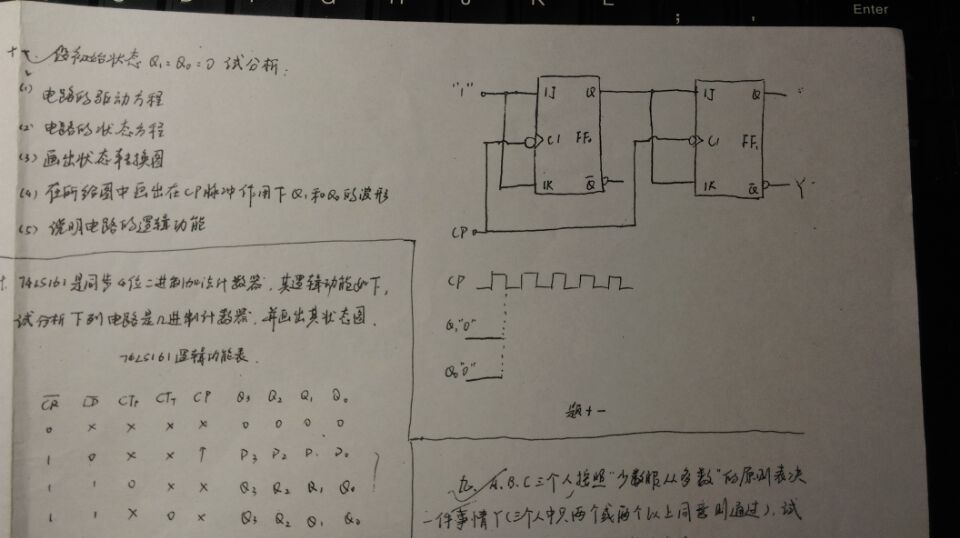 十一、设初始状态 Q₁=Q₀=0 试分析：
(1) 电路的驱动方程
(2) 电路的状态方程
(3) 画出状态转换图
(4) 在所给图中画出在CP脉冲作用下Q₁和Q₀的波形
(5) 说明电路的逻辑功能
"1" 1J Q 1J Q
C1 FF₀ C1 FF₁
1K Q̅ 1K Q̅ Y
CP
CP
Q₁"0"
Q₀"0"
题十一
74LS161是同步4位二进制加法计数器，其逻辑功能如下，
试分析下列电路是几进制计数器，并画出其状态图。
74LS161逻辑功能表
C̅R̅ L̅D̅ CTₚ CTᴛ CP Q₃ Q₂ Q₁ Q₀
0 × × × × 0 0 0 0
1 0 × × ↑ D₃ D₂ D₁ D₀
1 1 0 × × Q₃ Q₂ Q₁ Q₀
1 1 × 0 × Q₃ Q₂ Q₁ Q₀
九、A、B、C三个人按照"少数服从多数"的原则表决
一件事情Y(三个人中只两个或两个以上同意则通过)，试
Enter